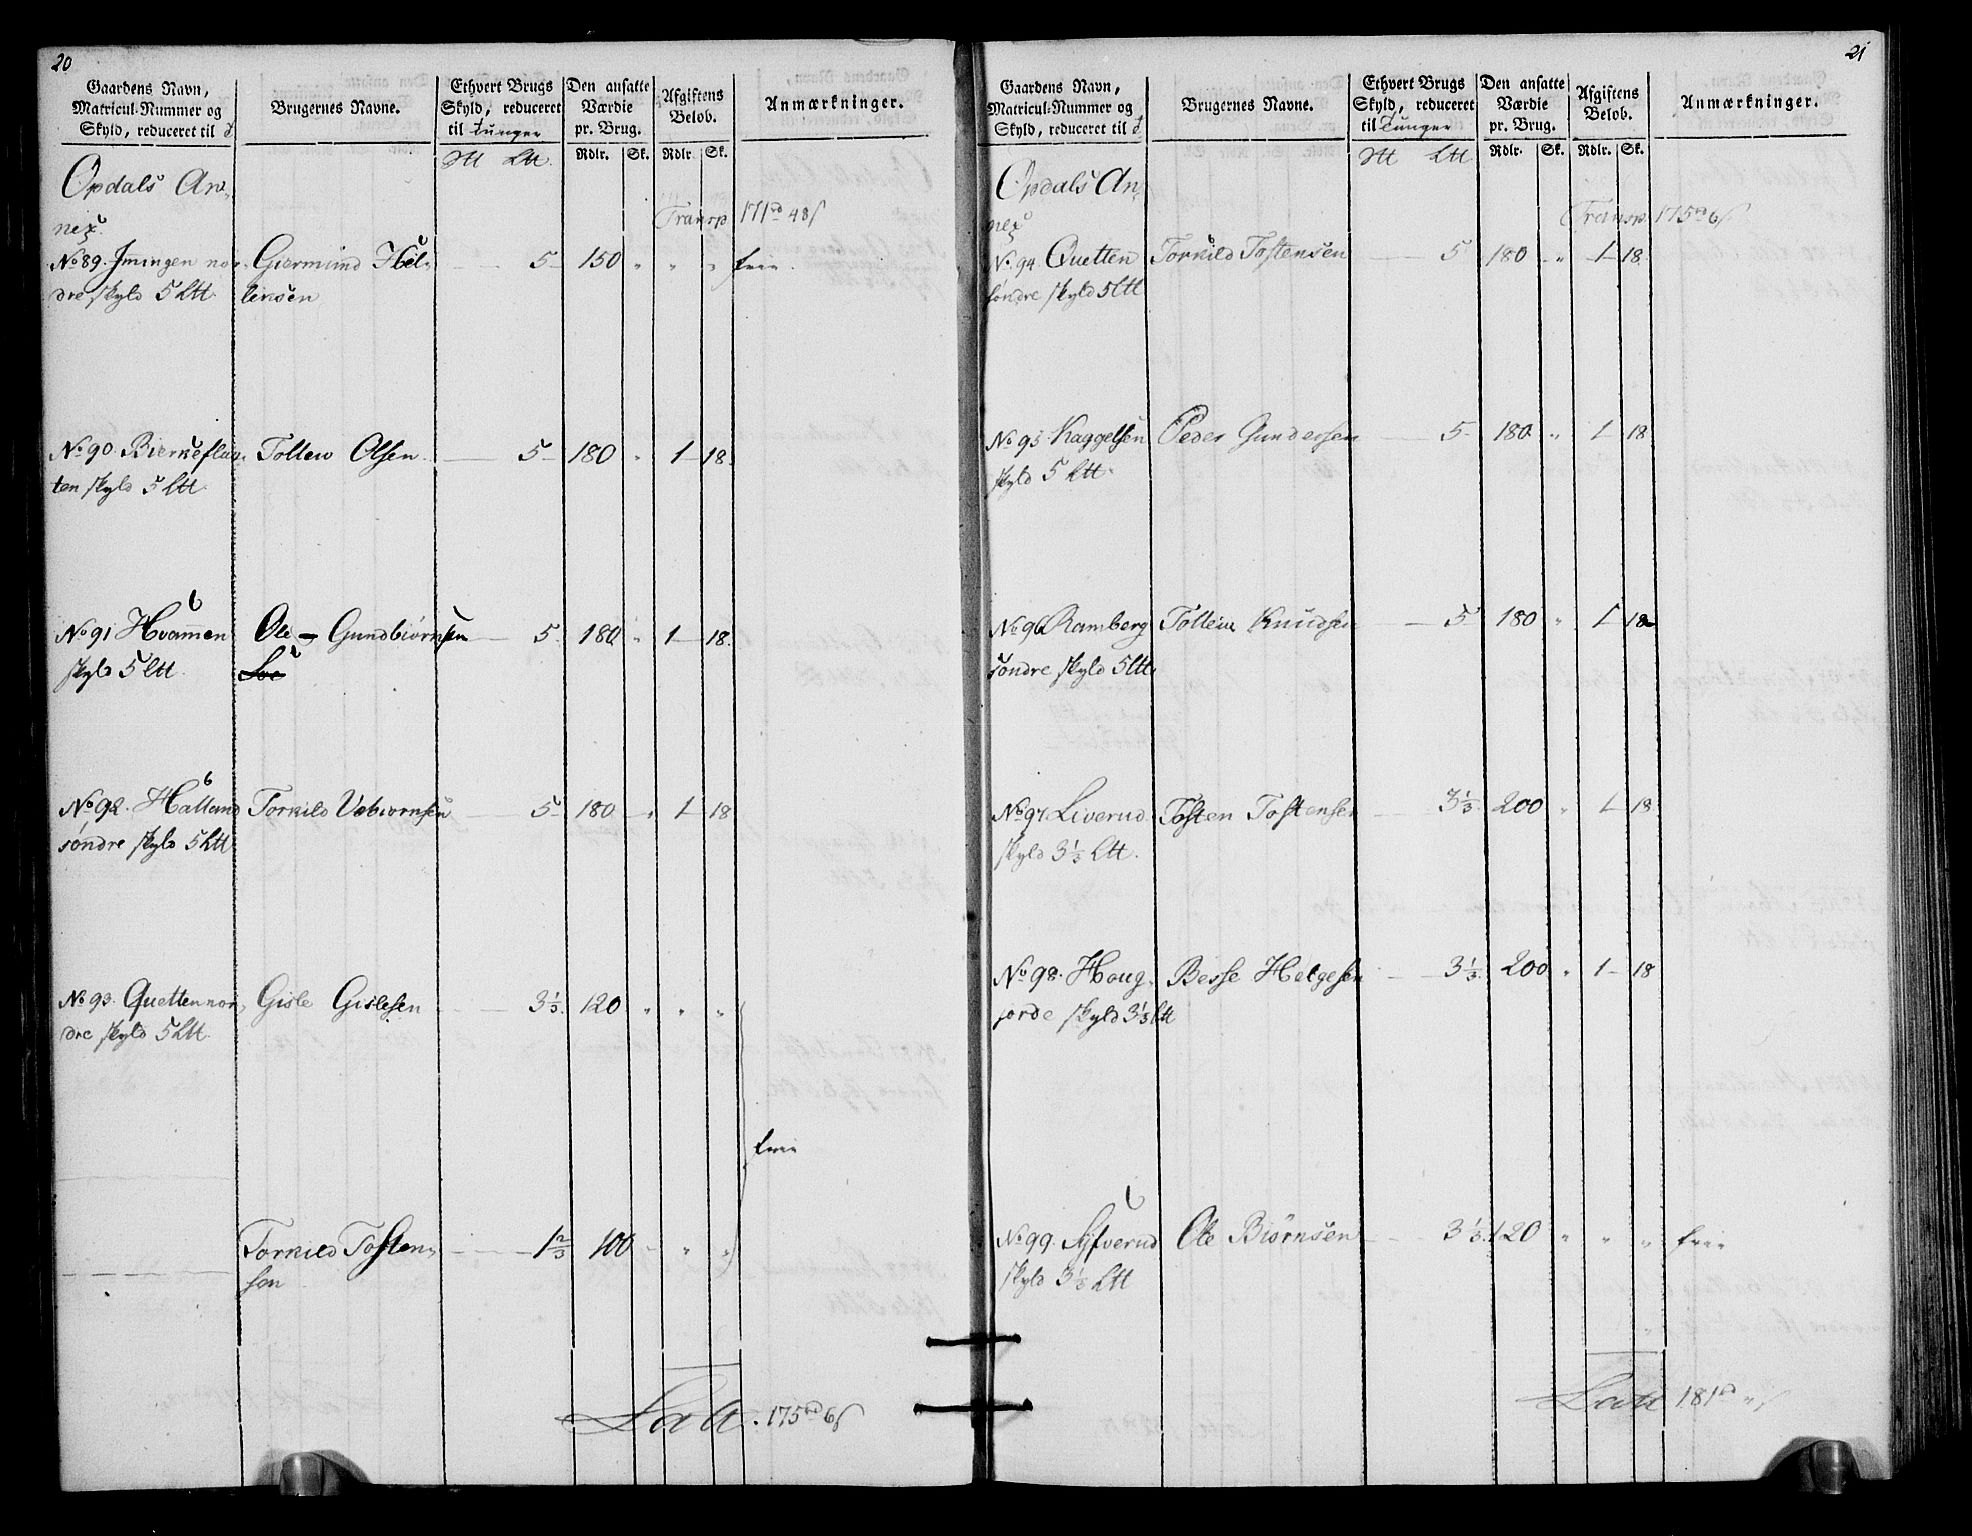 20
Gaardens Navn, Matricul-Nummer og Skyld, reduceret til
Brugernes Navne.
Ethvert Brugs Skyld, reduceret til Tunger
Den ansatte Værdie pr. Brug.
Afgiftens Beløb.
Anmærkninger.
Rdlr. Sk. Rdlr. Sk.
Opdals An-
nex.
Transp 171rd 48s
No 89. Imingen nor- Giermund Hel- 5 150 " " " frie.
dre skyld 5 Ltt. lensen
No 90. Bierkeflaa- Tollew Olsen. 5 180 " 1 18.
ten skyld 5 Ltt.
No 91 Hvammen Ole Gundbiørnsen 5. 180 " 1 18.
skyld 5 Ltt.
No 92. Halland Torkild Vebiørnsen 5 180 " 1 18
søndre skyld 5 Ltt
No 93. Quetten nor- Gisle Gislesen 3 1/3. 120 " " "
dre skyld 5 Ltt.
frie
Torkild Tosten- 1 2/3 100 " " "
sen
Latt. 175rd 6s
21
Gaardens Navn, Matricul-Nummer og Skyld, reduceret til
Brugernes Navne.
Ethvert Brugs Skyld, reduceret til Tunger
Den ansatte Værdie pr. Brug.
Afgiftens Beløb.
Anmærkninger.
Rdlr. Sk. Rdlr. Sk.
Opdals An-
nex
Transp. 175rd 6s
No. 94 Quetten Torkild Tostensen 5 180 " 1 18
søndre skyld 5 Ltt
No 95 Kaggelsen Peder Gundersen 5 180 " 1 18
skyld 5 Ltt.
No 96 Ramberg Tollew Knudsen 5 180 " 1 18
søndre skyld 5 Ltt.
No 97 Liverud. Tosten Tostensen 3 1/3 200 " 1 18
skyld 3 1/3 Ltt.
No 98. Houg- Besse Helgesen 3 1/3. 200 " 1 18
jorde skyld 3 1/3 Ltt
No 99. Syfverud Ole Biørnsen 3 1/3. 120 " " " frie
skyld 3 1/3 Ltt
Latt 181rd " s